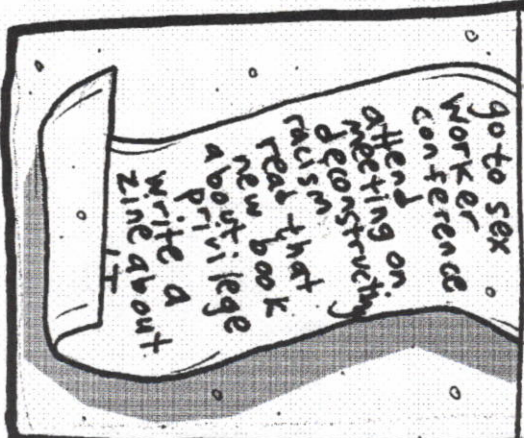 go to sex
worker
conference
attend
meeting on
deconstructing
racism
read that
new book
about
privilege
write a
zine about
IT